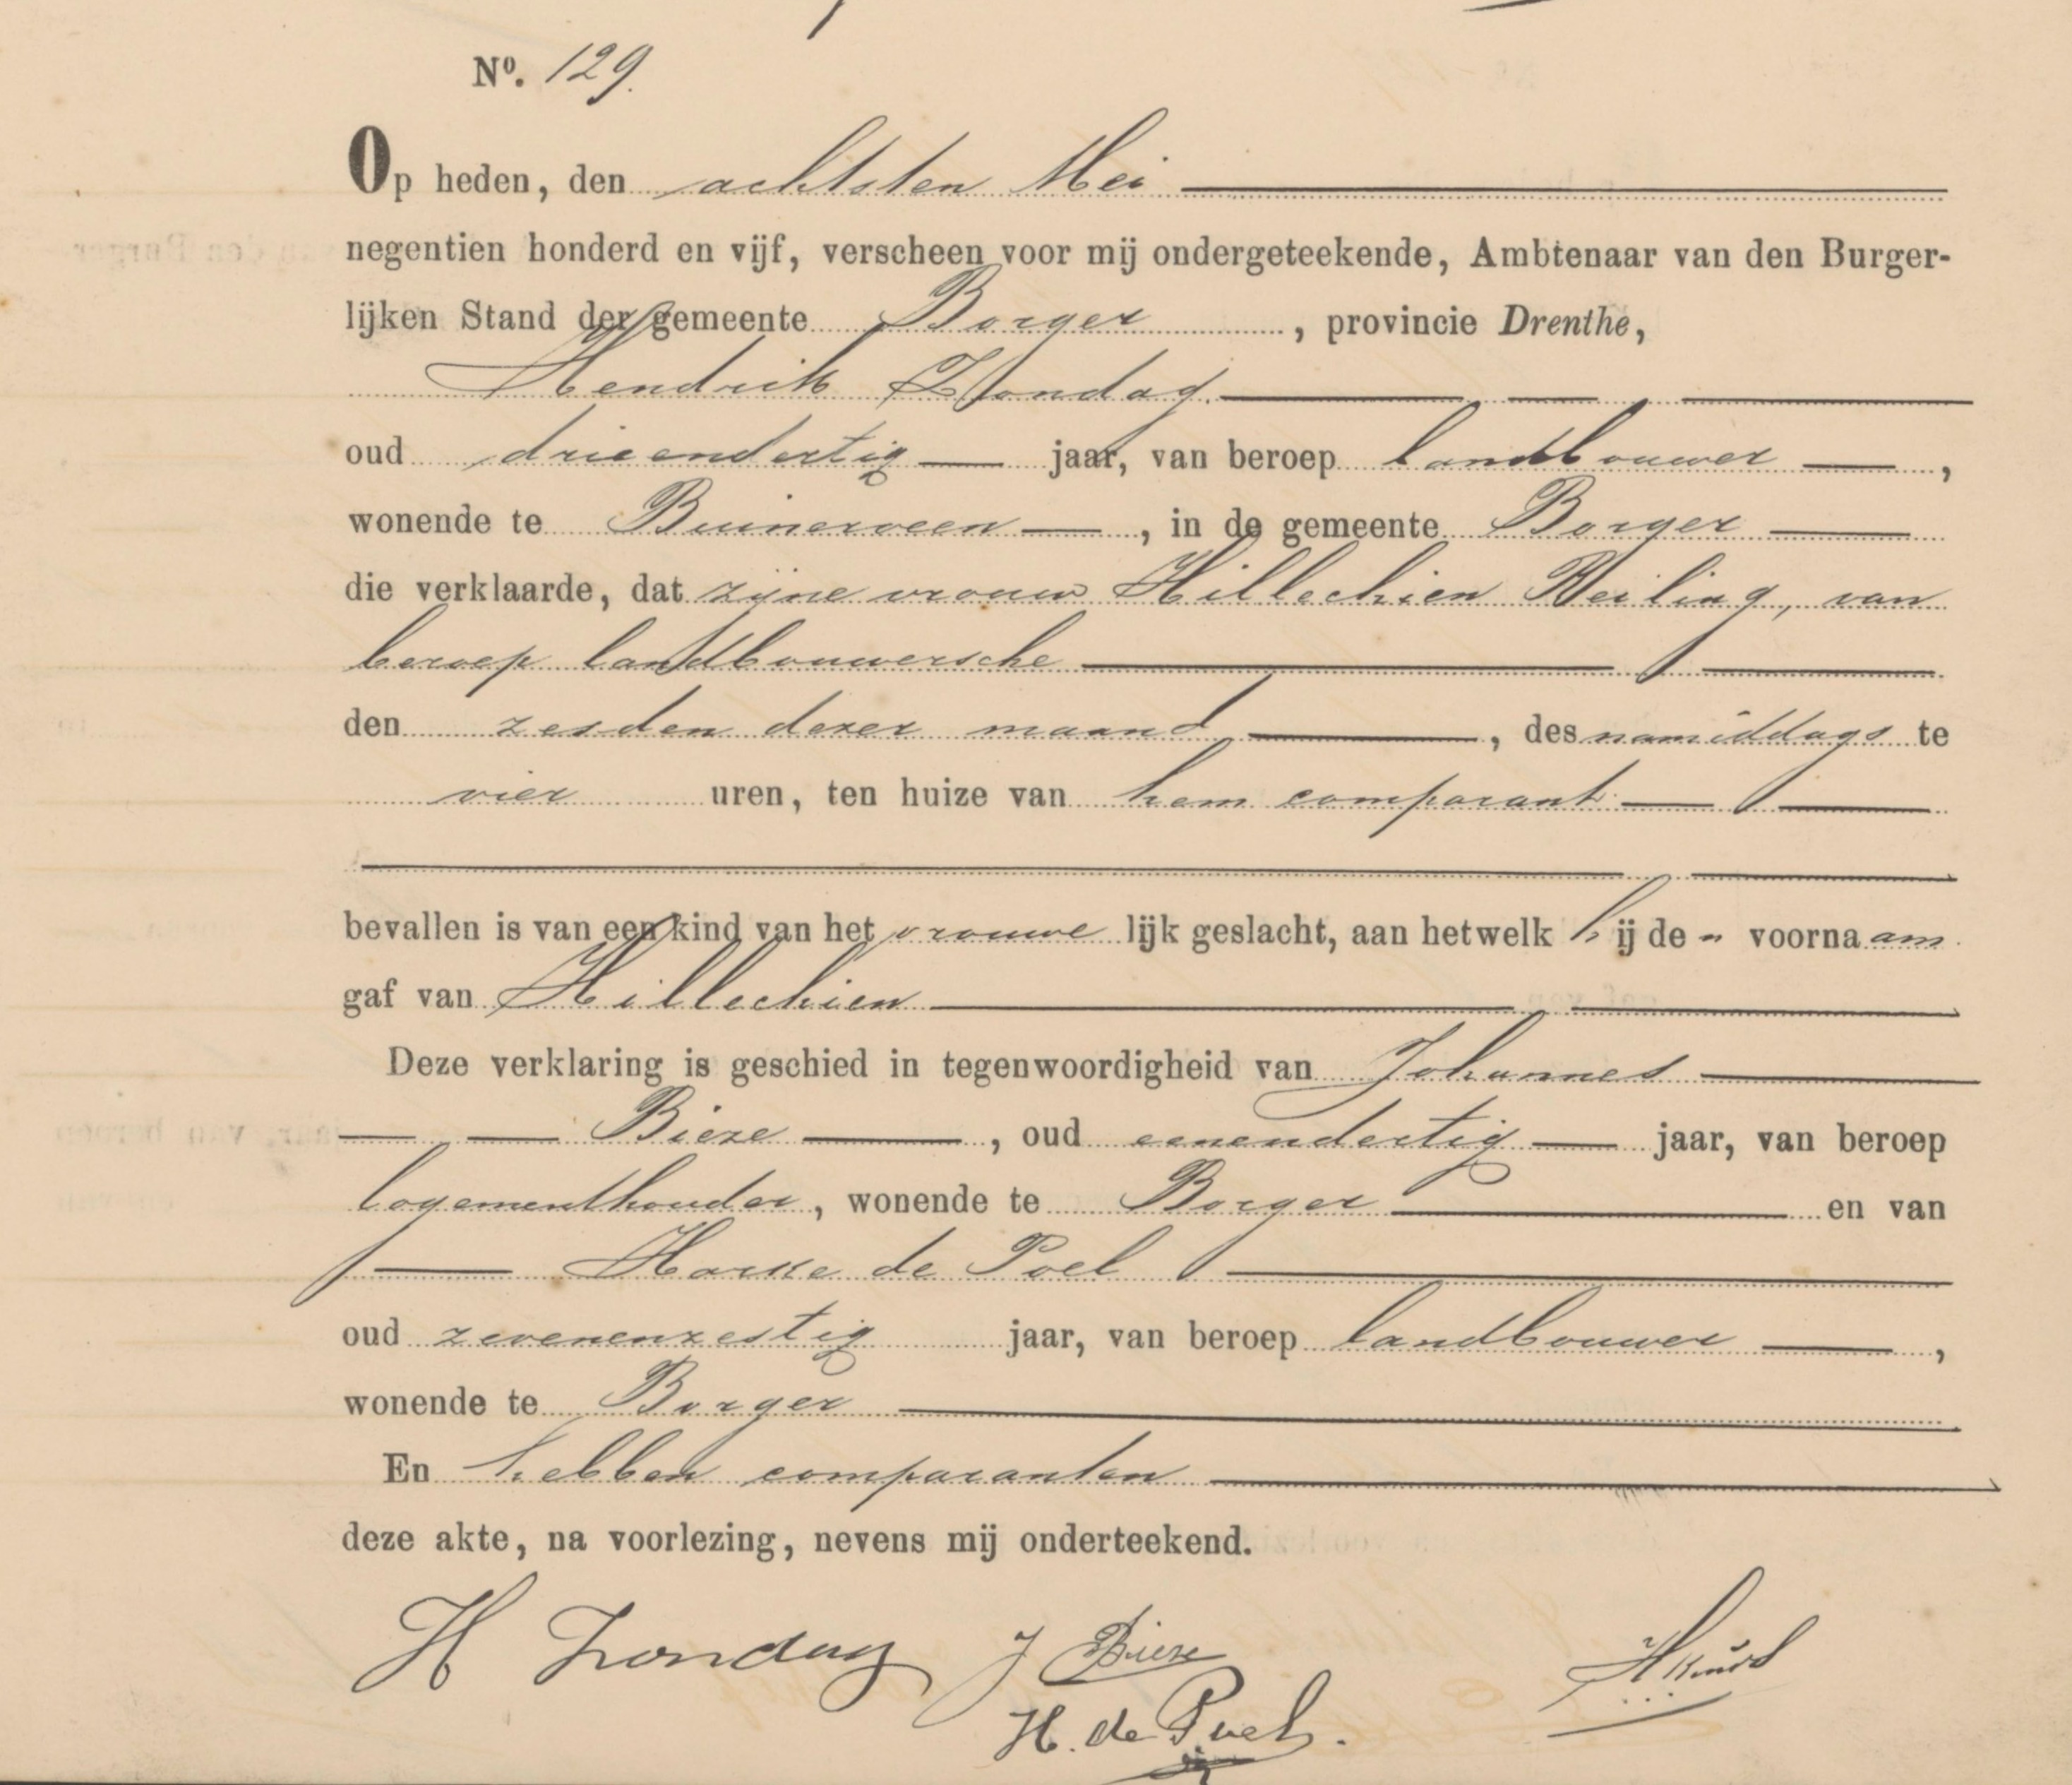 No. 129.
Op heden, den achtsten Mei
negentien honderd en vijf, verscheen voor mij ondergeteekende, Ambtenaar van den Burger-
lijken Stand der gemeente Borger, provincie Drenthe,
Hendrik Zondag.
oud drieendertig jaar, van beroep landbouwer,
wonende te Buinerveen, in de gemeente Borger
die verklaarde, dat zijne vrouw Hillechien Beiling, van
beroep landbouwersche
den zesden dezer maand, des namiddags te
vier uren, ten huize van hem comparant
bevallen is van een kind van het vrouwelijk geslacht, aan hetwelk hij de " voornaam
gaf van Hillechien
Deze verklaring is geschied in tegenwoordigheid van Johannes
Bieze, oud eenendertig jaar, van beroep
logementhouder, wonende te Borger en van
Harke de Poel
oud zevenenzestig jaar, van beroep landbouwer,
wonende te Borger
En hebben comparanten
deze akte, na voorlezing, nevens mij onderteekend.
H Zondag J Bieze
H. de Poel.